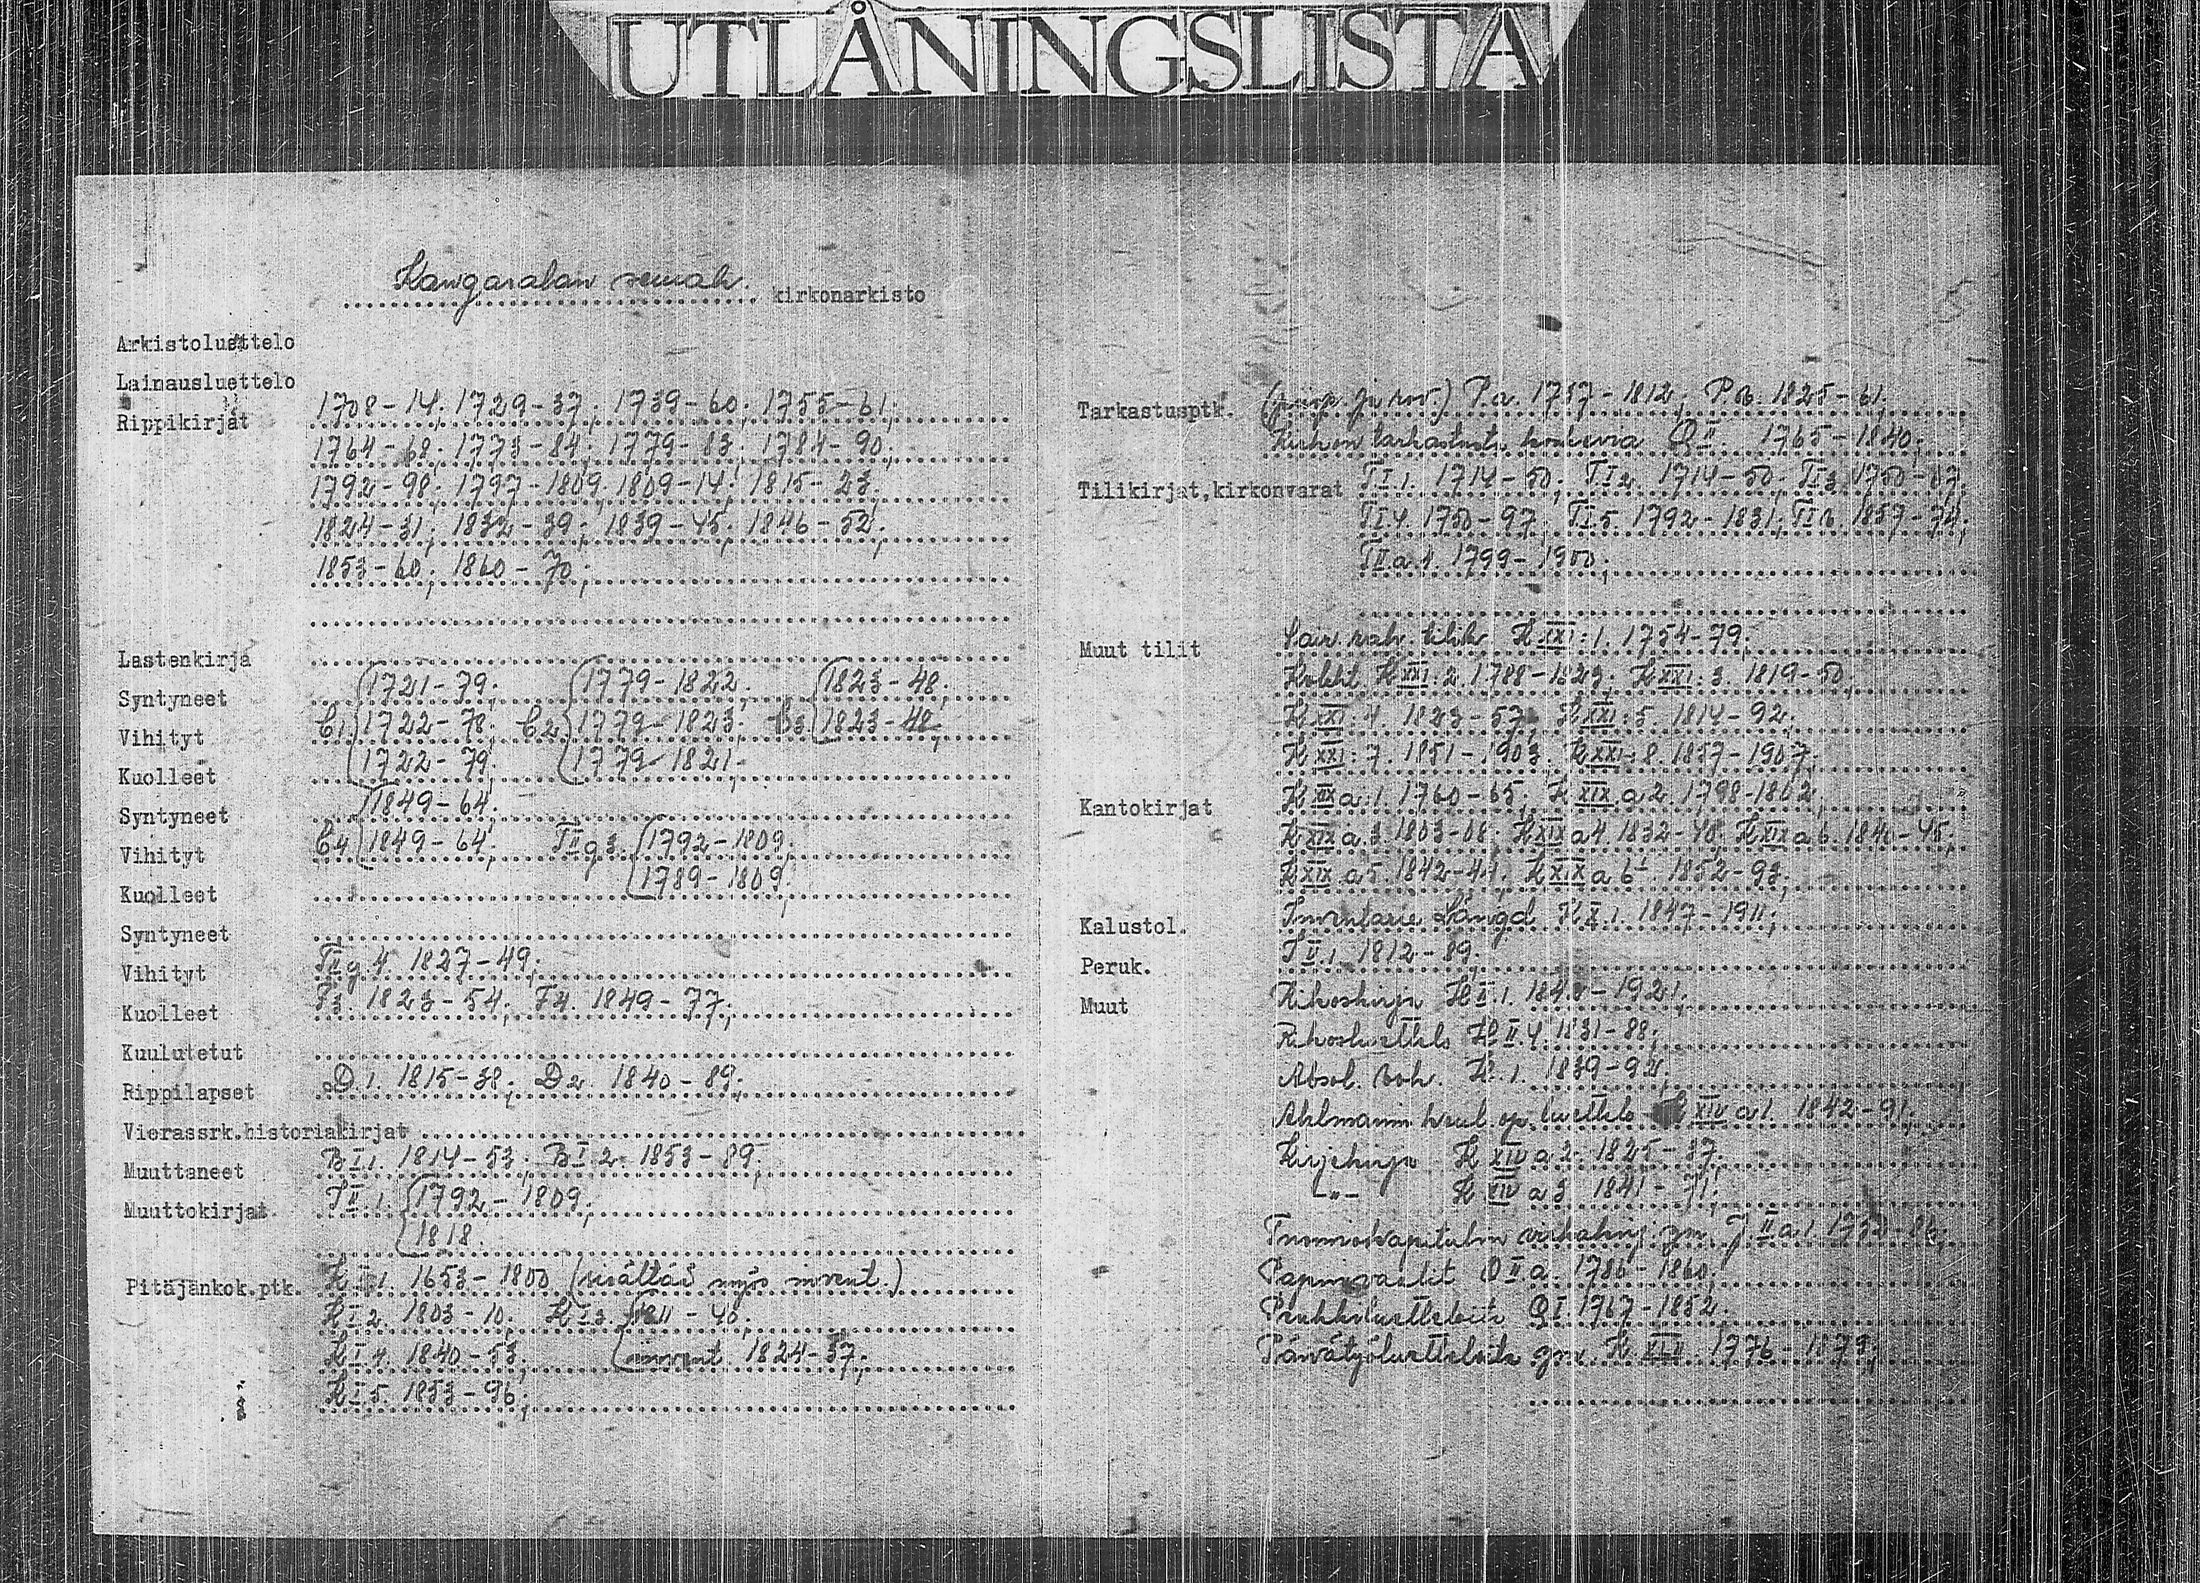 UTLÅNINGSLISTA
Kangasalan seurak. kirkonarkisto
Arkistoluettelo
Lainausluettelo
Rippikirjat 1708-14; 1729-37; 1739-60; 1755-61;
1764-68; 1773-84; 1779-83; 1784-90;
1792-98; 1797-1809; 1809-14; 1815-23;
1824-31; 1832-39; 1839-45; 1846-52;
1853-60; 1860-70;
Lastenkirja
Syntyneet 1721-79; 1779-1822; 1823-48;
Vihityt C1 1722-78; C2 1779-1823; C3 1823-48;
Kuolleet 1722-79; 1779-1821;
Syntyneet 1849-64;
Vihityt C4 1849-64; TII g 3. 1792-1809;
Kuolleet 1789-1809;
Syntyneet
Vihityt TII g 4. 1827-49;
Kuolleet F3. 1823-54; F4. 1849-77;
Kuulutetut
Rippilapset D.1. 1815-38; D2. 1840-89;
Vierassrk.historiakirjat
Muuttaneet BI1. 1814-53; BI2. 1853-89;
Muuttokirjat II.1. 1792-1809;
1818.
Pitäjänkok.ptk. KI1. 1653-1800 (sisältää myös invent.)
KI2. 1803-10; KI3. 1811-40;
KI4. 1840-53; invent 1824-57;
KI5. 1853-96;
Tarkastusptk. (piisp. ja rov.) P.a. 1757-1812; P.b. 1825-61;
Kirkon tarkastusta koskevia QII. 1765-1840;
Tilikirjat,kirkonvarat TI1. 1714-50; TI2. 1714-50; TI3. 1750-07;
TI4. 1750-97; TI5. 1792-1831; TI6. 1857-74;
TII a 1. 1799-1900;
Muut tilit rah. tilik. KXXI:1. 1754-79;
Koleht. KXXI:2. 1788-1823; KXXI:3. 1819-50;
KXXI:4. 1823-57; KXXI:5. 1814-92;
KXXI:7. 1851-1903; KXXI:8. 1857-1907;
Kantokirjat KXIX a:1. 1760-65; KXIX a 2. 1798-1802;
KXIX a 3. 1803-08; KXIX a 4. 1832-40; KXIX a 6. 1840-45;
KXIX a 5. 1842-44; KXIX a 6¹. 1852-93;
Kalustol. Inventarie Längd KX.1. 1847-1911;
Peruk. II.1. 1812-89;
Muut Rikoskirja KII.1. 1840-1921;
Rikosluettelo KII.4. 1831-88;
Absol. K.1. 1839-92;
Ahlmanin koul. op. luettelo KXIV a 1. 1842-91;
Kirjekirja KXIV a 2. 1825-37;
-"- KXIV a 3. 1841-71;
Tuomiokapitulin virkakirj. ym. JII a 1. 1752-86;
Papinvaalit OII a. 1786-1860;
Penkkiluetteloita QI. 1767-1852;
Päivätyöluetteloita ym. KXLII. 1776-1879;